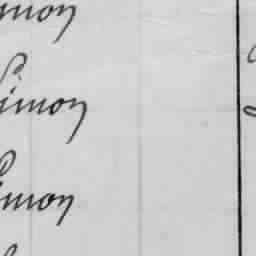 imon
Simon
Simon